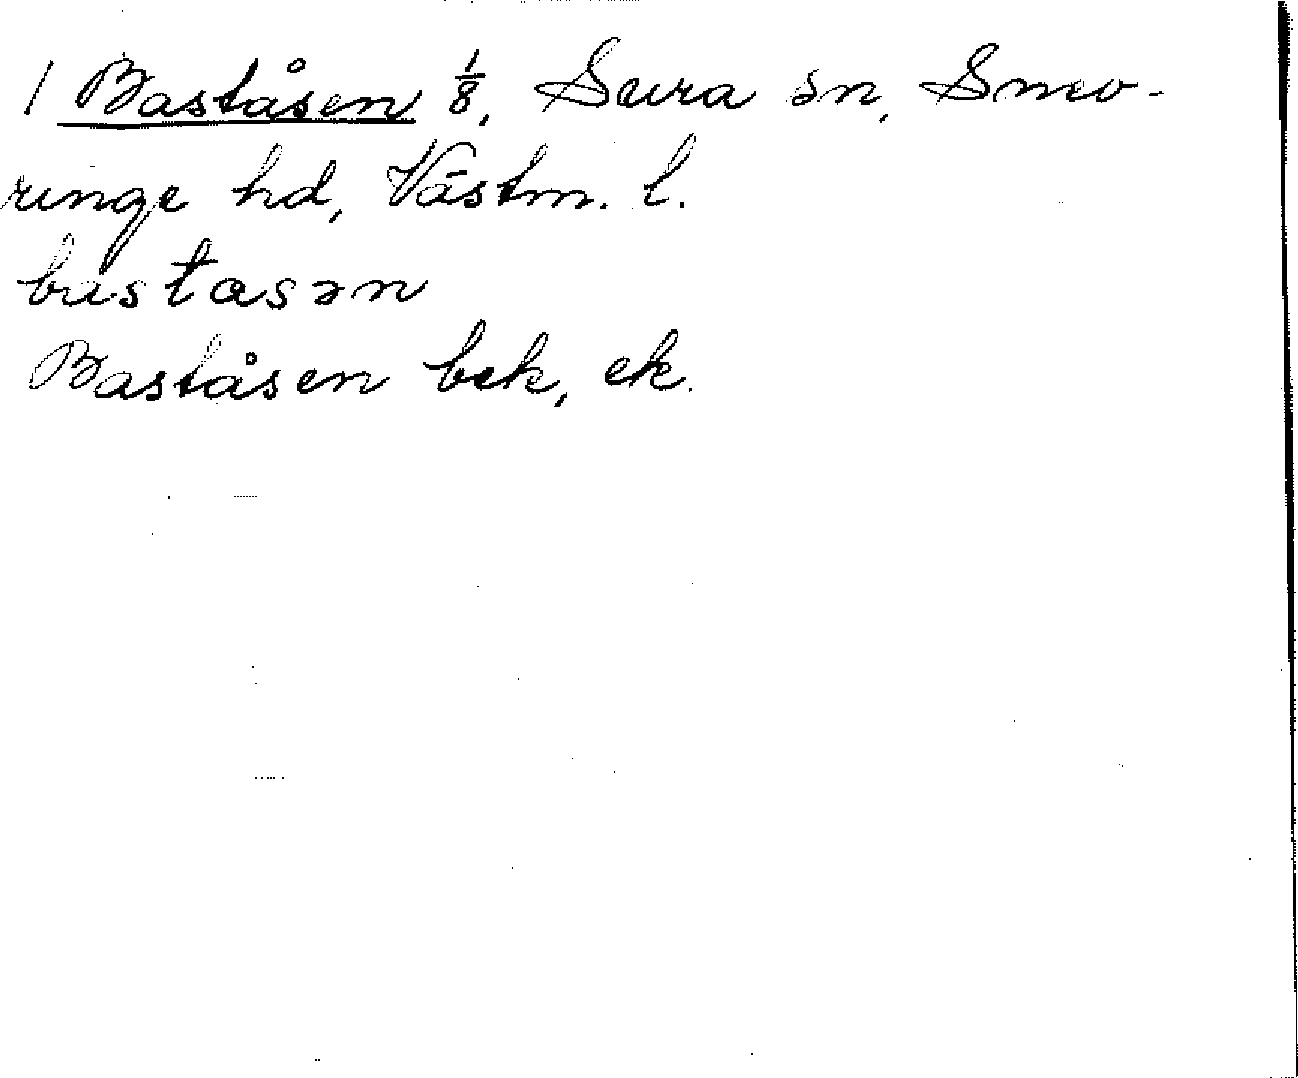 1 Baståsen 1/8, Sura sn, Snev-
ringe hd, Västm. l.
bastasən
Baståsen bek, ek.